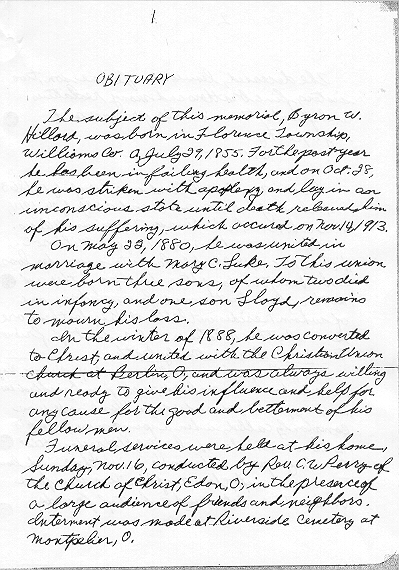 1
OBITUARY
The subject of this memorial, Byron W.
Hillard, was born in Florence Township,
Williams Co. O, July 29, 1855. For the past year
he has been in failing health, and on Oct. 28,
he was striken with apoplexy, and lay in an
unconscious state until death released him
of his suffering, which occured on Nov 14, 1913.
On May 23, 1880, he was united in
marriage with Mary C. Luke. To this union
were born three sons, of whom two died
in infancy, and one son Lloyd, remains
to mourn his loss.
In the winter of 1888, he was converted
to Christ, and united with the Christian Union
church at Berlin, O, and was always willing
and ready to give his influence and help for
any cause for the good and betterment of his
fellow men.
Funeral services were held at his home,
Sunday, Nov. 16, conducted by Rev. C. W. Perry of
the Church of Christ, Edon, O, in the presence of
a large audience of friends and neighbors.
Interment was made at Riverside Cemetery at
Montpelier, O.